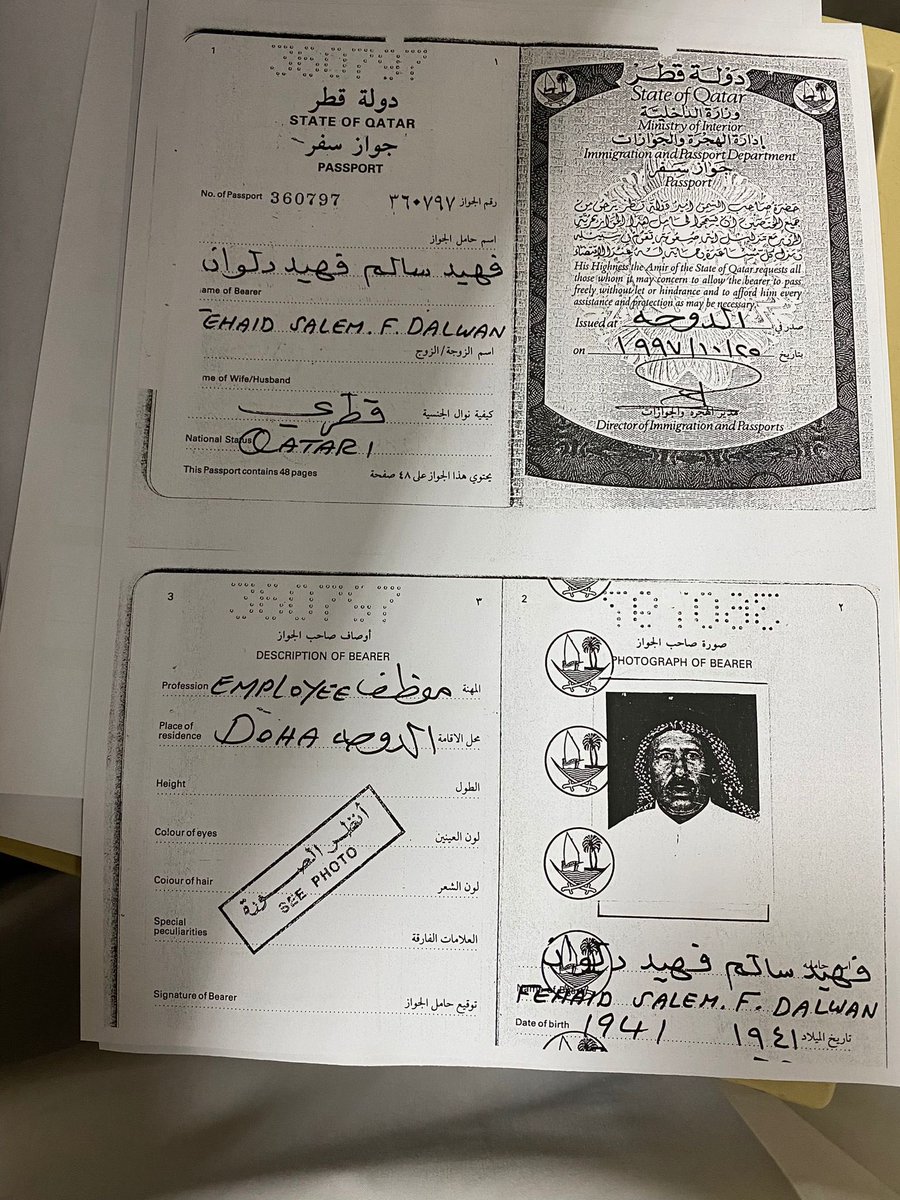 1
١
360797
دولة قطر
STATE OF QATAR
جواز سفر
PASSPORT
No. of Passport 360797 ٣٦٠٧٩٧ رقم الجواز
اسم حامل الجواز
فهيد سالم فهيد دلوان
ame of Bearer
EHAID SALEM. F. DALWAN
اسم الزوجة/الزوج
me of Wife/Husband
قطري كيفية نوال الجنسية
National Status QATARI
This Passport contains 48 pages يحتوي هذا الجواز على ٤٨ صفحة
دولة قطر
State of Qatar
وزارة الداخلية
Ministry of Interior
إدارة الهجرة والجوازات
Immigration and Passport Department
جواز سفر
Passport
His Highness the Amir of the State of Qatar requests all
those whom it may concern to allow the bearer to pass
freely without let or hindrance and to afford him every
assistance and protection as may be necessary.
Issued at الدوحه صدر في
on ١٩٩٧/١٠/٢٥ بتاريخ
مدير الهجرة والجوازات
Director of Immigration and Passports
3
٣
360797
أوصاف صاحب الجواز
DESCRIPTION OF BEARER
Profession EMPLOYEE موظف المهنة
Place of
residence DOHA الدوحه محل الاقامة
Height الطول
Colour of eyes لون العينين
Colour of hair لون الشعر
Special
peculiarities العلامات الفارقة
أنظر الصورة
SEE PHOTO
Signature of Bearer توقيع حامل الجواز
2
٢
صورة صاحب الجواز
PHOTOGRAPH OF BEARER
فهيد سالم فهيد دلوان
FEHAID SALEM. F. DALWAN
Date of birth 1941 ١٩٤١ تاريخ الميلاد